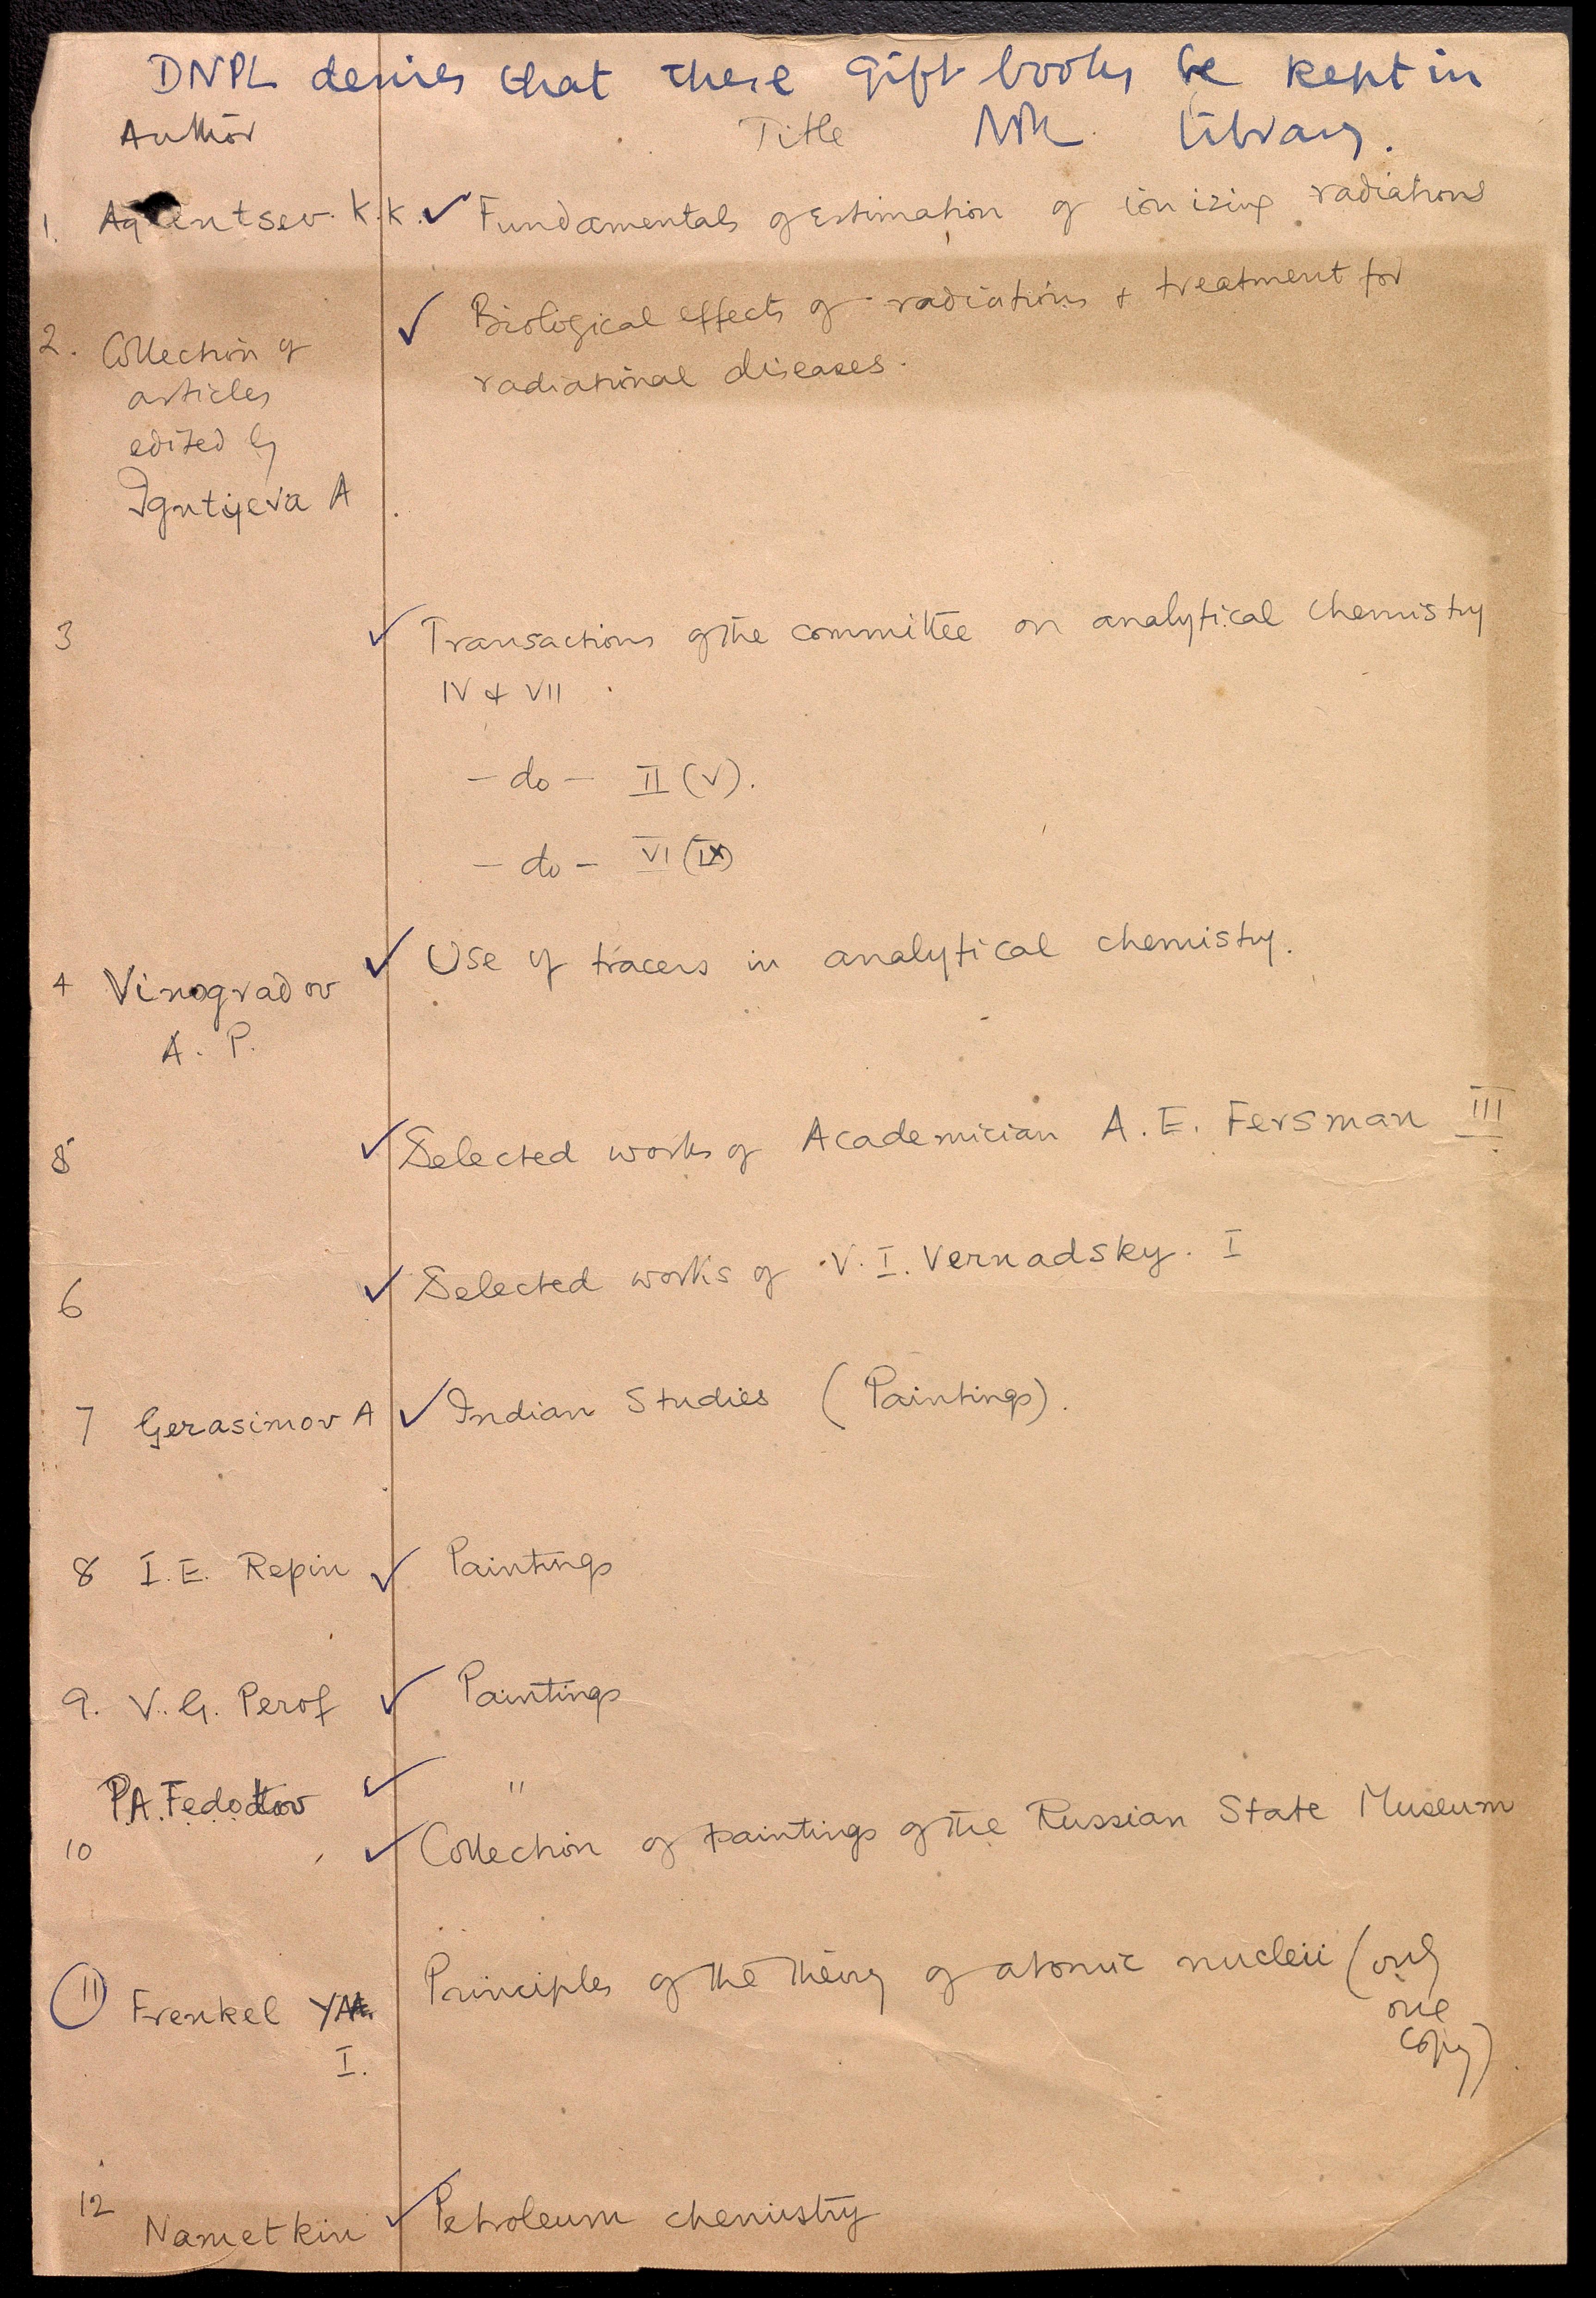 DNPL desires that these gift books be kept in
Library.
Author Title
1. K.K. ✓ Fundamentals of Estimation of ionizing radiations
2. Collection of articles edited by Igntijeva A ✓ Biological effects of radiations & treatment for
radiational diseases.
3 ✓ Transactions of the committee on analytical chemistry
IV & VII
- do - II (V).
- do - VI (IX)
4 Vinogradov ✓ Use of tracers in analytical chemistry.
A. P.
5 ✓ Selected works of Academician A.E. Fersman III
6 ✓ Selected works of V.I. Vernadsky. I
7 Gerasimov A ✓ Indian Studies (Paintings).
8 I.E. Repin ✓ Paintings
9. V.G. Perof ✓ Paintings
P.A. Fedotov ✓ "
10 ✓ Collection of paintings of the Russian State Museum
11 Frenkel Principles of the theory of atomic nucleii (only
one
copy)
I.
12 Nametkin ✓ Petroleum chemistry